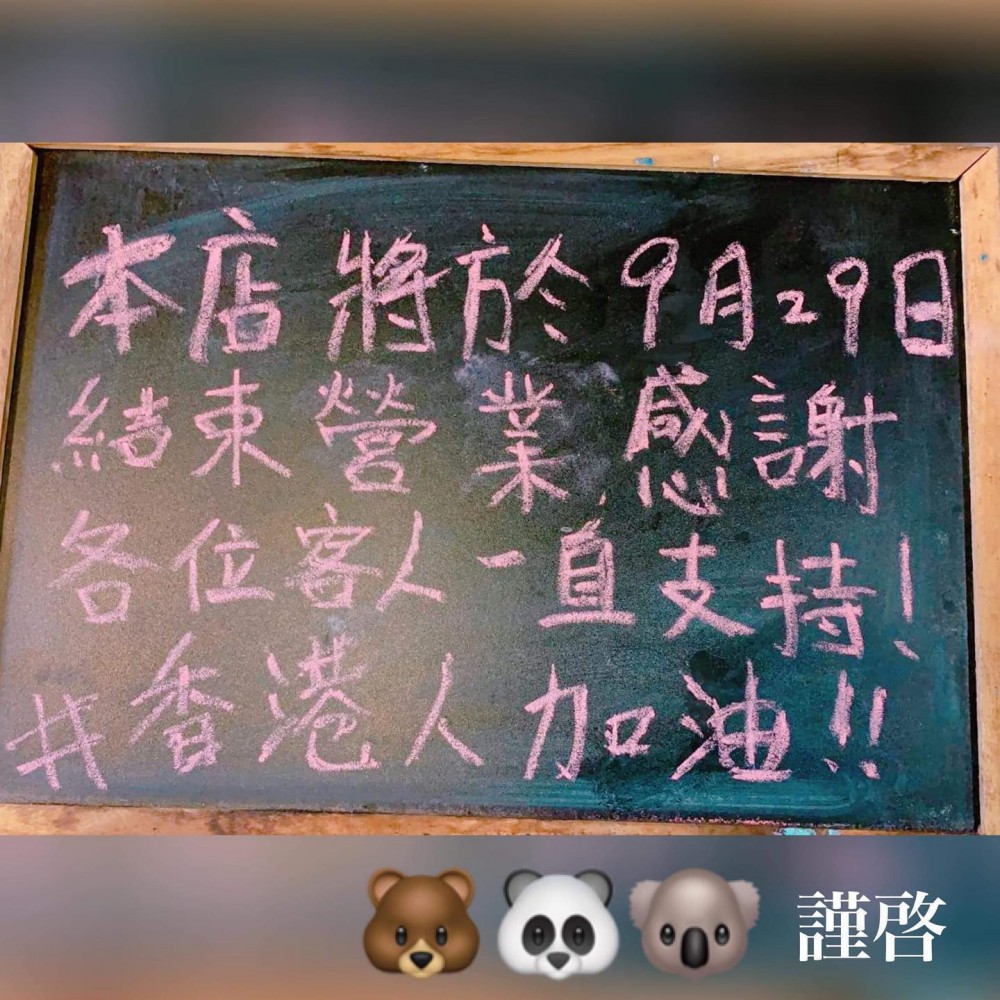 本店將於9月29日
結束營業感謝
各位客人一直支持!
#香港人加油!!
謹啓